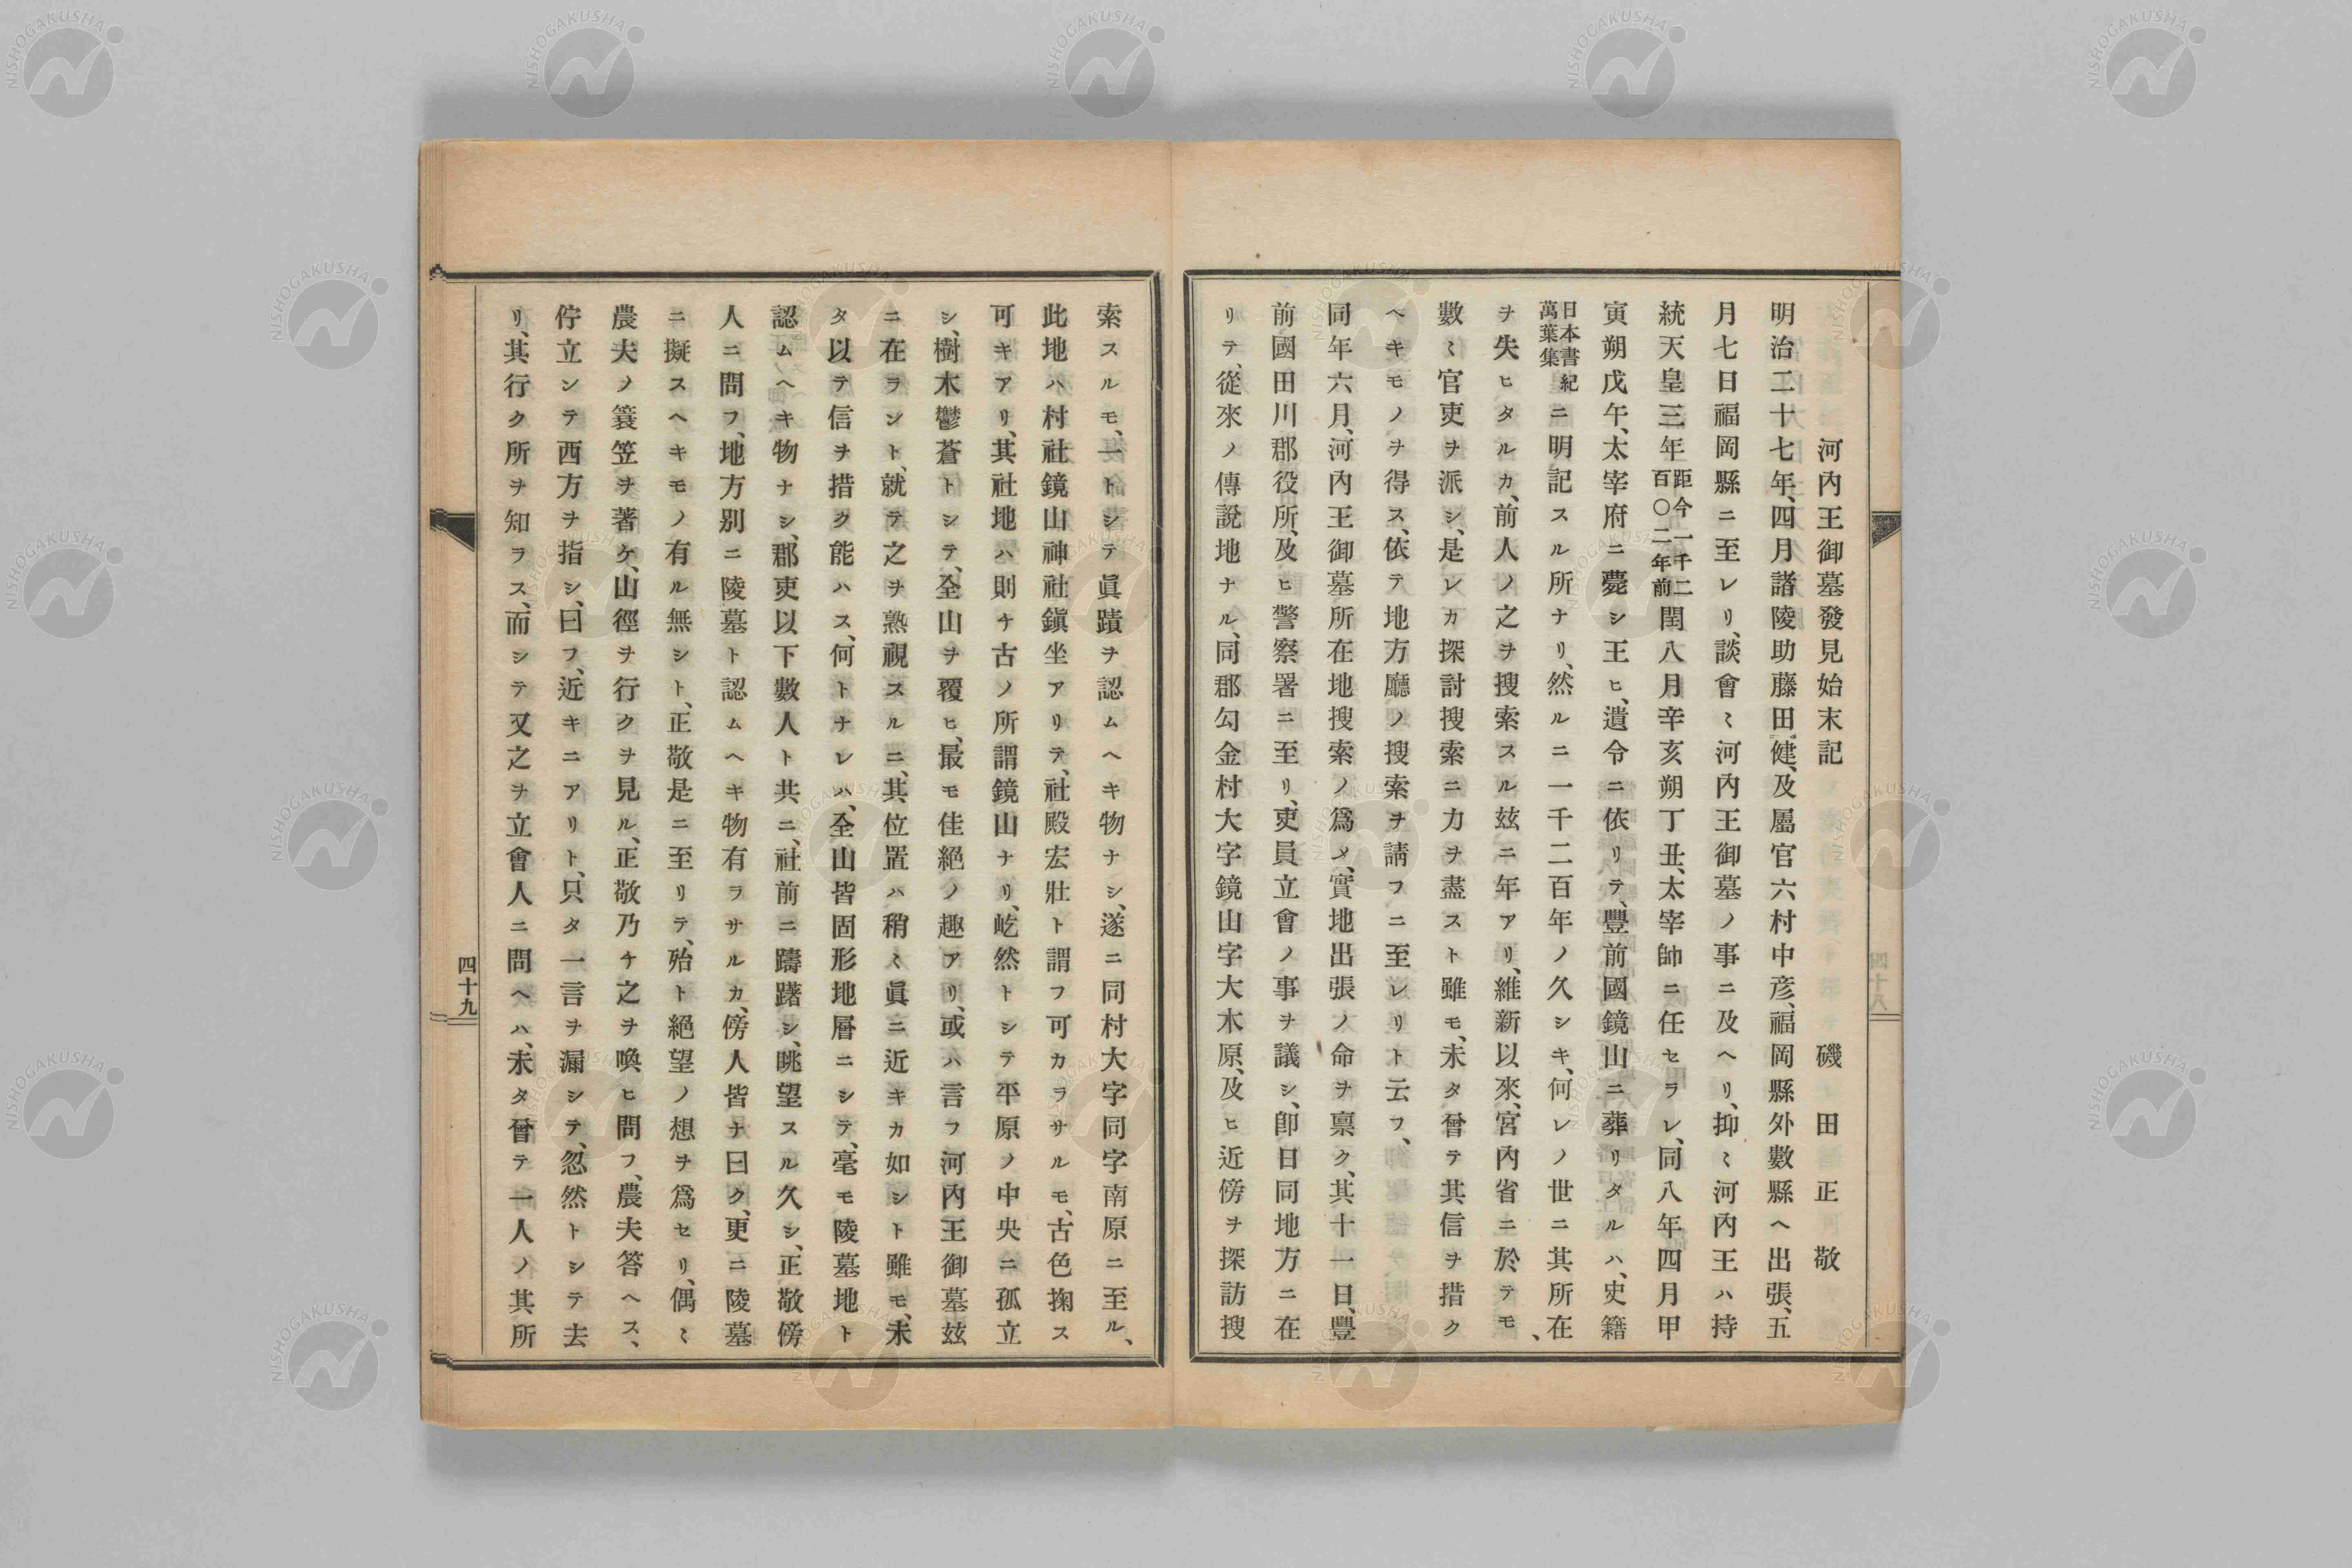 河內王御墓發見始末記　磯田正敬
明治二十七年、四月諸陵助藤田健、及屬官六村中彦、福岡縣外數縣ヘ出張、五
月七日福岡縣ニ至レリ、談會〻河內王御墓ノ事ニ及ヘリ、抑〻河內王ハ持
統天皇三年距今一千二百〇二年前閏八月辛亥朔丁丑、太宰帥ニ任セラレ、同八年四月甲
寅朔戊午、太宰府ニ薨シ王ヒ、遺令ニ依リテ、豐前國鏡山ニ葬リタルハ、史籍
日本書紀萬葉集ニ明記スル所ナリ、然ルニ一千二百年ノ久シキ、何レノ世ニ其所在
ヲ失ヒタルカ、前人ノ之ヲ搜索スル玆ニ年アリ、維新以來、宮內省ニ於テモ、
數〻官吏ヲ派シ、是レカ探討搜索ニ力ヲ盡スト雖モ、未タ曾テ其信ヲ措ク
ヘキモノヲ得ス、依テ地方廳ノ搜索ヲ請フニ至レリト云フ、
同年六月、河內王御墓所在地搜索ノ爲メ、實地出張ノ命ヲ禀ク、其十一日、豐
前國田川郡役所、及ヒ警察署ニ至リ、吏員立會ノ事ヲ議シ、卽日同地方ニ在
リテ、從來ノ傳說地ナル、同郡勾金村大字鏡山字大木原、及ヒ近傍ヲ探訪搜
索スルモ、一トシテ眞蹟ヲ認ムヘキ物ナシ、遂ニ同村大字同字南原ニ至ル、
此地ハ村社鏡山神社鎭坐アリテ、社殿宏壯ト謂フ可カラサルモ、古色掬ス
可キアリ、其社地ハ則チ古ノ所謂鏡山ナリ、屹然トシテ平原ノ中央ニ孤立
シ、樹木鬱蒼トシテ、全山ヲ覆ヒ、最モ佳絕ノ趣アリ、或ハ言フ河內王御墓玆
ニ在ラント、就テ之ヲ熟視スルニ、其位置ハ稍〻眞ニ近キカ如シト雖モ、未
タ以テ信ヲ措ク能ハス、何トナレハ、全山皆固形地層ニシテ、毫モ陵墓地ト
認ムヘキ物ナシ、郡吏以下數人ト共ニ、社前ニ躊躇シ、眺望スル久シ、正敬傍
人ニ問フ、地方別ニ陵墓ト認ムヘキ物有ラサルカ、傍人皆ナ曰ク、更ニ陵墓
ニ擬スヘキモノ有ル無シト、正敬是ニ至リテ、殆ト絕望ノ想ヲ爲セリ、偶〻
農夫ノ簑笠ヲ著ケ、山徑ヲ行クヲ見ル、正敬乃チ之ヲ喚ヒ問フ、農夫答ヘス、
佇立ンテ西方ヲ指シ、曰フ、近キニアリト、只タ一言ヲ漏シテ、忽然トシテ去
リ、其行ク所ヲ知ラス、而シテ又之ヲ立會人ニ問ヘハ、未タ曾テ一人ノ其所
四十九